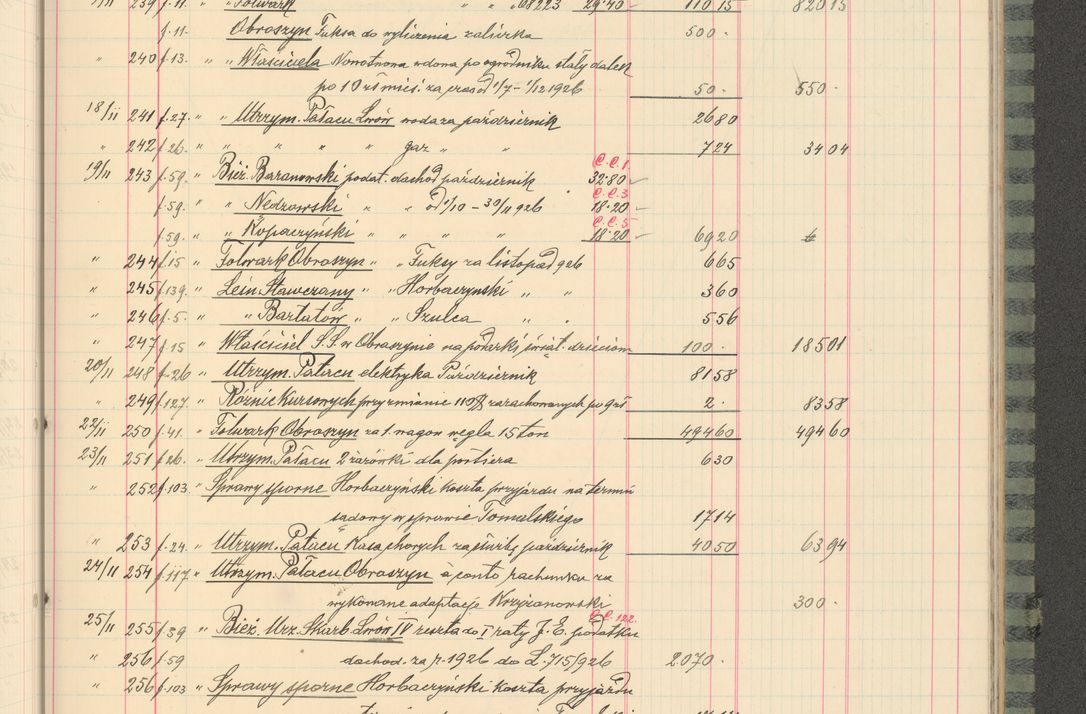 239 f.11. " " Folwark " " " 68223 29·40 – 110 15 820 15
f.11. Obroszyn Fuksa do wyliczenia zaliczka 500 ·
" 240 f.13. " " Właściciela Nowotnona wdowa po ogrodniku stały datek
po 10 zł mies. za czas od 1/7 – 1/12 1926 50 · 550 ·
18/11 241 f.27. " " Utrzym. Pałacu Lwów woda za październik 26 80
" 242 f.26. " " " " " gaz " " 7 24 34 04
C.C.1.
19/11 243 f.59. " Bież. Baranowski podat. dochod październik 32·80 –
C.C.3
f.59. " " Nedzowski " " od 1/10 – 30/11 926 18·20 –
C.C.5
f.59. " " Kopaczyński " " " " " 18·20 – 69 20
" 244 f.15 " Folwark Obroszyn " " Fuksy za listopad 926 6 65
" 245 f.139. " Lein Stawczany " " Horbaczynski " " 3 60
" 246 f.5. " " Bartatów " " Szulca " " 5 56
" 247 f.15 " Właściciel S.S. w Obroszynie na świąt. dzieciom 100 · 185 01
20/11 248 f.26 " Utrzym. Pałacu elektryka Październik 81 58
" 249 f.127. " Różnic Kursowych przy zmianie 110 $ zarachowanych po 9 zł 2 · 83 58
22/11 250 f.41. " Folwark Obroszyn za 1. wagon węgla 15 ton 494 60 494 60
23/11 251 f.26. " Utrzym. Pałacu 2 żarówki dla portiera 6 30
" 252 f.103. " Sprawy sporne Horbaczyński koszta przyjazdu na termin
sądowy w sprawie Tomalskiego 17 14
" 253 f.24. " Utrzym. Pałacu Kasa chorych za służbę październik 40 50 63 94
24/11 254 f.117 " Utrzym. Pałacu Obroszyn à conto rachunku za
wykonane adaptacje Krzyżanowski 300 ·
C.C.122.
25/11 255 f.39 " Bież. Urz. Skarb. Lwów IV reszta do I raty J.E. podatku
" 256 f.59 dochod. za r. 1926 do L. 715/926 2070 ·
" 256 f.103 " Sprawy sporne Horbaczyński koszta przyjazdu